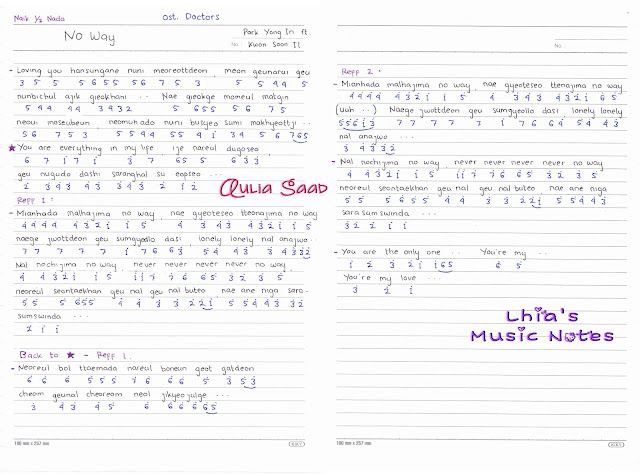 Naik ½ Nada
OST. Doctors
No Way
Park Yong In ft.
No. Kwon Soon Il
- Loving you hansungane nuni meoreottdeon, meon geunarui geu
3 5 5 5 6 5 5 5 6 7 5 3 5 5 4 4 5
nunbichul ajik gieokhani... Nae gieokge moreul matgin
5 4 4 4 4 3 4 3 2 5 6 5 5 5 6 7 5
neoui moseubeun neomuhado nuni busyeo sumi makhyeottji...
5 6 7 5 3 5 5 4 4 5 5 4 i 3 4 5 6 7 6 5
★ You are everything in my life, ije nareul dugoseo
6 7 i 7 i 3 7 6 5 5 6 3 3
geu nugudo dashi saranghal su eopseo...
2 3 4 3 4 3 3 4 3 2 i 2
Aulia Saad
Reff 1:
- Mianhada malhajima no way, nae gyeoteseo tteonajima no way
4 4 4 4 4 3 2 i i 5 4 3 4 3 4 3 2 i i 5
naege jwottdeon geu sumgyeollo dasi, lonely lonely nal anajwo..
7 7 7 7 7 i 7 6 6 3 5 4 4 3 3 4 3 3 2
Nal nochijima no way, never never never never no way
4 4 3 2 i i 5 i i 7 7 6 6 5 3 2 3 5
neoreul seontaekhan geu nal geu nal buteo nae ane niga sara-
5 5 5 6 5 5 4 4 3 3 2 2 i 5 5 4 4 3 3 2
sumswinda...
2 i i
Back to ★ - Reff 1.
- Neoreul bol ttaemada nareul boneun geot gatdeon
6 6 6 5 5 5 i 6 6 6 5 3 5 3
cheom geunal cheoreom neal jikyeojulge...
3 4 3 4 5 6 6 6 6 6 5
100 mm x 257 mm
KIKY
No.
Reff 2:
- Mianhada malhajima no way, nae gyeoteseo tteonajima no way
4 4 4 4 4 3 2 i i 5 4 3 4 3 4 3 2 i 6 5
(Uoh...) Naege jwottdeon geu sumgyeollo dasi lonely lonely
5 5 6 i 3 7 7 7 7 7 i 7 6 6 4 5 4 4 3
nal anajwo...
3 4 3 3 2
- Nal nochijima no way, never never never never no way
4 4 3 2 i i 5 i i 7 7 6 6 5 3 2 3 5
neoreul seontaekhan geu nal geu nal buteo nae ane niga
5 5 5 6 5 5 4 4 3 3 2 2 i 5 5 4 4 3
sara sumswinda...
3 2 2 i i
- You are the only one... You're my..
i 2 3 2 i i 6 5 6 5
You're my love...
3 2 i
Lhia's
Music Notes
100 mm x 257 mm
KIKY